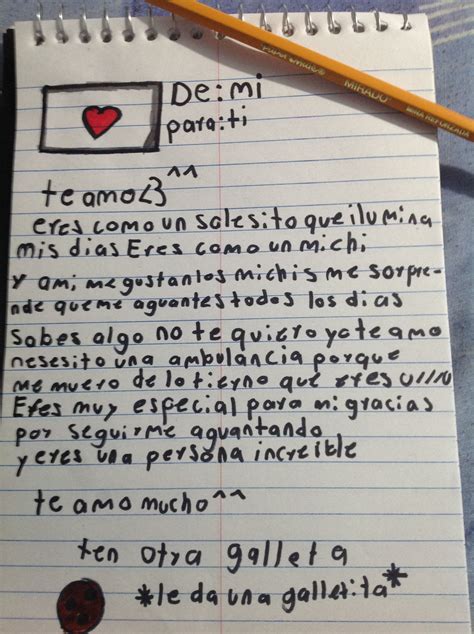 MIRADO
MINA REFORZADA
De: mi
para: ti
te amo<3 ^^
eres como un solesito que ilumina
mis dias Eres como un michi
y ami, me gustan los michis me sorpre-
nde que me aguantes todos los dias
Sabes algo no te quiero yo te amo
nesesito una ambulancia porque
me muero de lo tierno que eres
Eres muy especial para mi gracias
por seguirme aguantando
y eres una persona increible
te amo mucho^^
ten otra galleta
*le da una galletita*